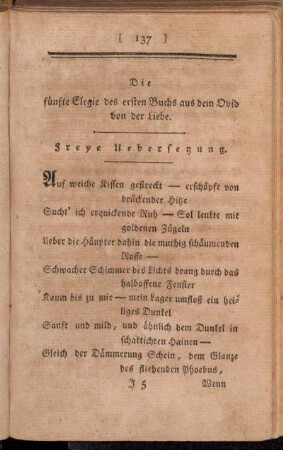 [ 137 ]
Die
fünfte Elegie des ersten Buchs aus dem Ovid
von der Liebe.
Freye Uebersetzung.
Auf weiche Kissen gestreckt — erschöpft von
drückender Hitze
Sucht' ich erquickende Ruh — Sol lenkte mit
goldenen Zügeln
Ueber die Häupter dahin die muthig schäumenden
Rosse —
Schwacher Schimmer des Lichts drang durch das
halboffene Fenster
Kaum bis zu mir — mein Lager umfloß ein hei-
liges Dunkel
Sanft und mild, und ähnlich dem Dunkel in
schattichten Hainen —
Gleich der Dämmerung Schein, dem Glanze
des fliehenden Phoebus,
J 5 Wenn